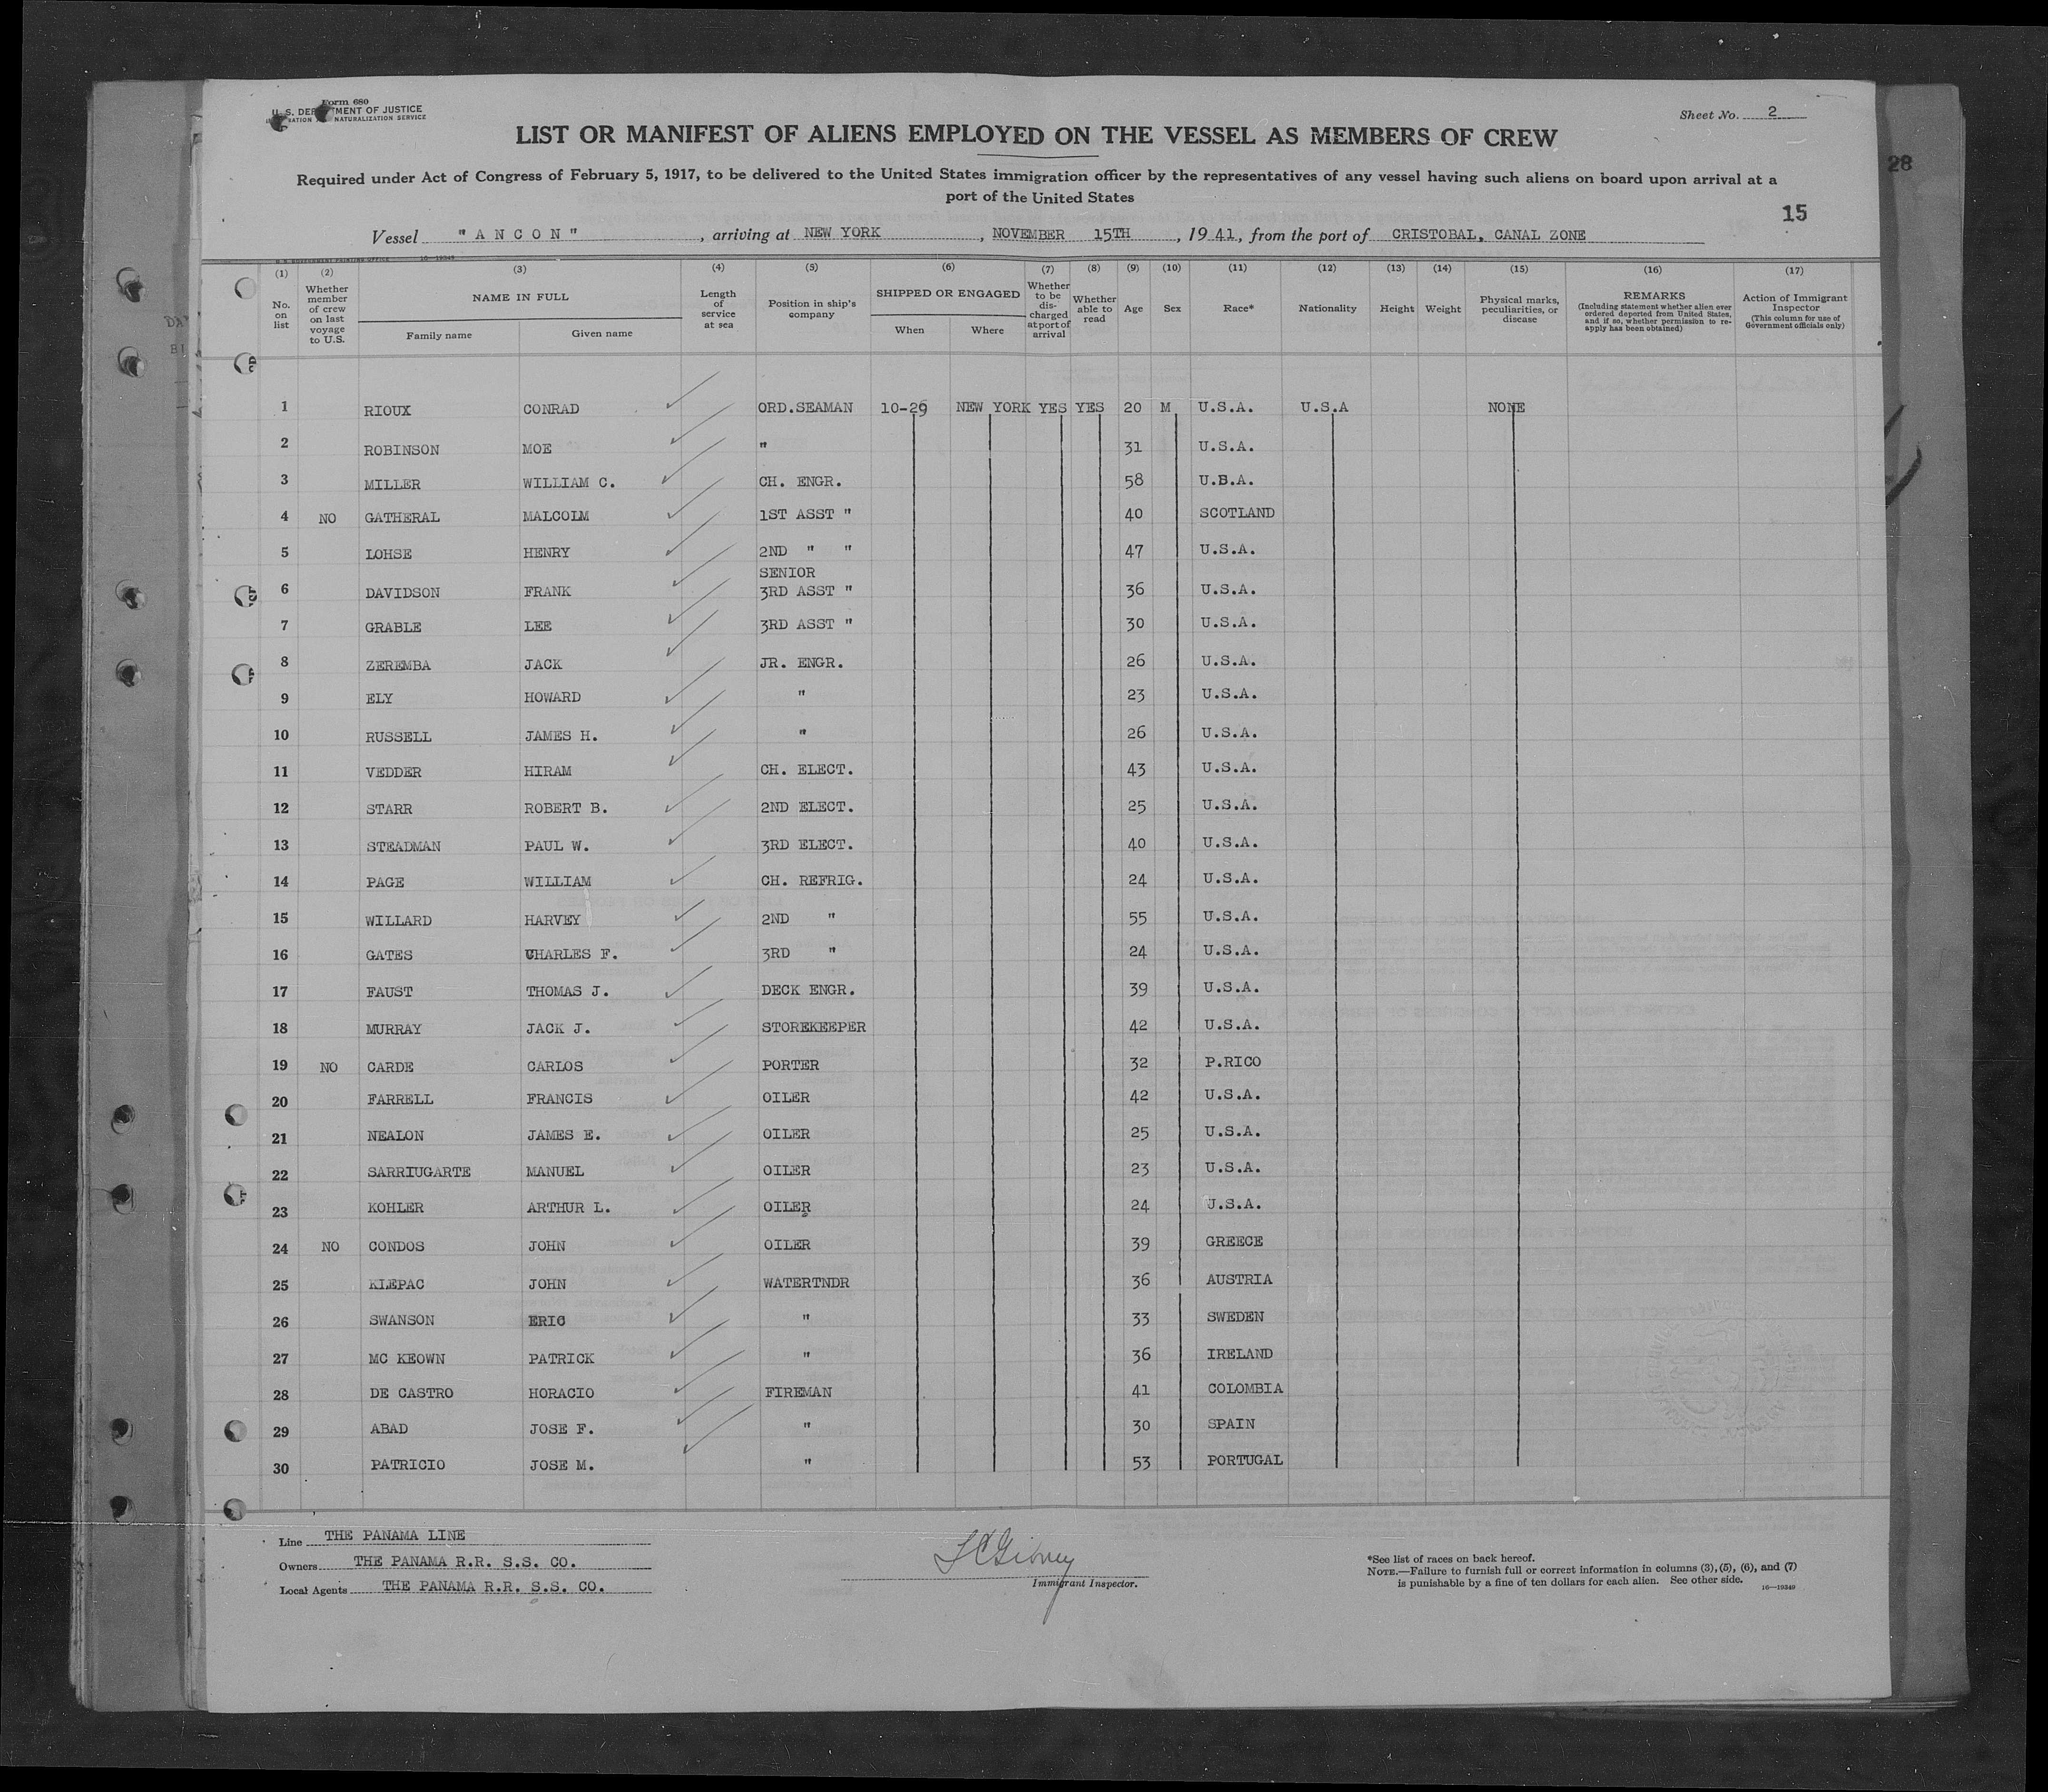 Form 680
U. S. DEPARTMENT OF JUSTICE
NATURALIZATION SERVICE
Sheet No. 2
LIST OR MANIFEST OF ALIENS EMPLOYED ON THE VESSEL AS MEMBERS OF CREW
Required under Act of Congress of February 5, 1917, to be delivered to the United States immigration officer by the representatives of any vessel having such aliens on board upon arrival at a
port of the United States
28
15
Vessel "ANCON", arriving at NEW YORK, NOVEMBER 15TH, 1941, from the port of CRISTOBAL, CANAL ZONE
(1) (2) (3) (4) (5) (6) (7) (8) (9) (10) (11) (12) (13) (14) (15) (16) (17)
No. on list
Whether member of crew on last voyage to U.S.
NAME IN FULL
Family name
Given name
Length of service at sea
Position in ship's company
SHIPPED OR ENGAGED
When
Where
Whether to be discharged at port of arrival
Whether able to read
Age
Sex
Race*
Nationality
Height
Weight
Physical marks, peculiarities, or disease
REMARKS
(Including statement whether alien ever ordered deported from United States, and if so, whether permission to reapply has been obtained)
Action of Immigrant Inspector
(This column for use of Government officials only)
1 RIOUX CONRAD ORD.SEAMAN 10-29 NEW YORK YES YES 20 M U.S.A. U.S.A NONE
2 ROBINSON MOE " 31 U.S.A.
3 MILLER WILLIAM C. CH. ENGR. 58 U.B.A.
4 NO GATHERAL MALCOLM 1ST ASST " 40 SCOTLAND
5 LOHSE HENRY 2ND " " 47 U.S.A.
SENIOR
6 DAVIDSON FRANK 3RD ASST " 36 U.S.A.
7 GRABLE LEE 3RD ASST " 30 U.S.A.
8 ZEREMBA JACK JR. ENGR. 26 U.S.A.
9 ELY HOWARD " 23 U.S.A.
10 RUSSELL JAMES H. " 26 U.S.A.
11 VEDDER HIRAM CH. ELECT. 43 U.S.A.
12 STARR ROBERT B. 2ND ELECT. 25 U.S.A.
13 STEADMAN PAUL W. 3RD ELECT. 40 U.S.A.
14 PAGE WILLIAM CH. REFRIG. 24 U.S.A.
15 WILLARD HARVEY 2ND " 55 U.S.A.
16 GATES CHARLES F. 3RD " 24 U.S.A.
17 FAUST THOMAS J. DECK ENGR. 39 U.S.A.
18 MURRAY JACK J. STOREKEEPER 42 U.S.A.
19 NO CARDE CARLOS PORTER 32 P.RICO
20 FARRELL FRANCIS OILER 42 U.S.A.
21 NEALON JAMES E. OILER 25 U.S.A.
22 SARRIUGARTE MANUEL OILER 23 U.S.A.
23 KOHLER ARTHUR L. OILER 24 U.S.A.
24 NO CONDOS JOHN OILER 39 GREECE
25 KLEPAC JOHN WATERTNDR 36 AUSTRIA
26 SWANSON ERIC " 33 SWEDEN
27 MC KEOWN PATRICK " 36 IRELAND
28 DE CASTRO HORACIO FIREMAN 41 COLOMBIA
29 ABAD JOSE F. " 30 SPAIN
30 PATRICIO JOSE M. " 53 PORTUGAL
Line THE PANAMA LINE
Owners THE PANAMA R.R. S.S. CO.
Local Agents THE PANAMA R.R. S.S. CO.
Immigrant Inspector.
*See list of races on back hereof.
NOTE.—Failure to furnish full or correct information in columns (3), (5), (6), and (7)
is punishable by a fine of ten dollars for each alien. See other side.
16—19340